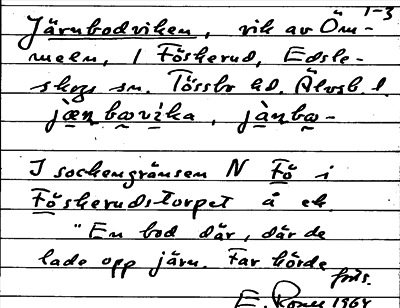 1-3
Järnbodviken, vik av Öm-
meln, 1 Föskerud, Edsle-
skogs sn. Tössbo hd. Älvsb. l.
jæ̀nbωvika, jànbω-
I sockengränsen N Fö i
Föskerudstorpet å ek.
"En bod där, där de
lade opp järn. Far hörde
E. 1964